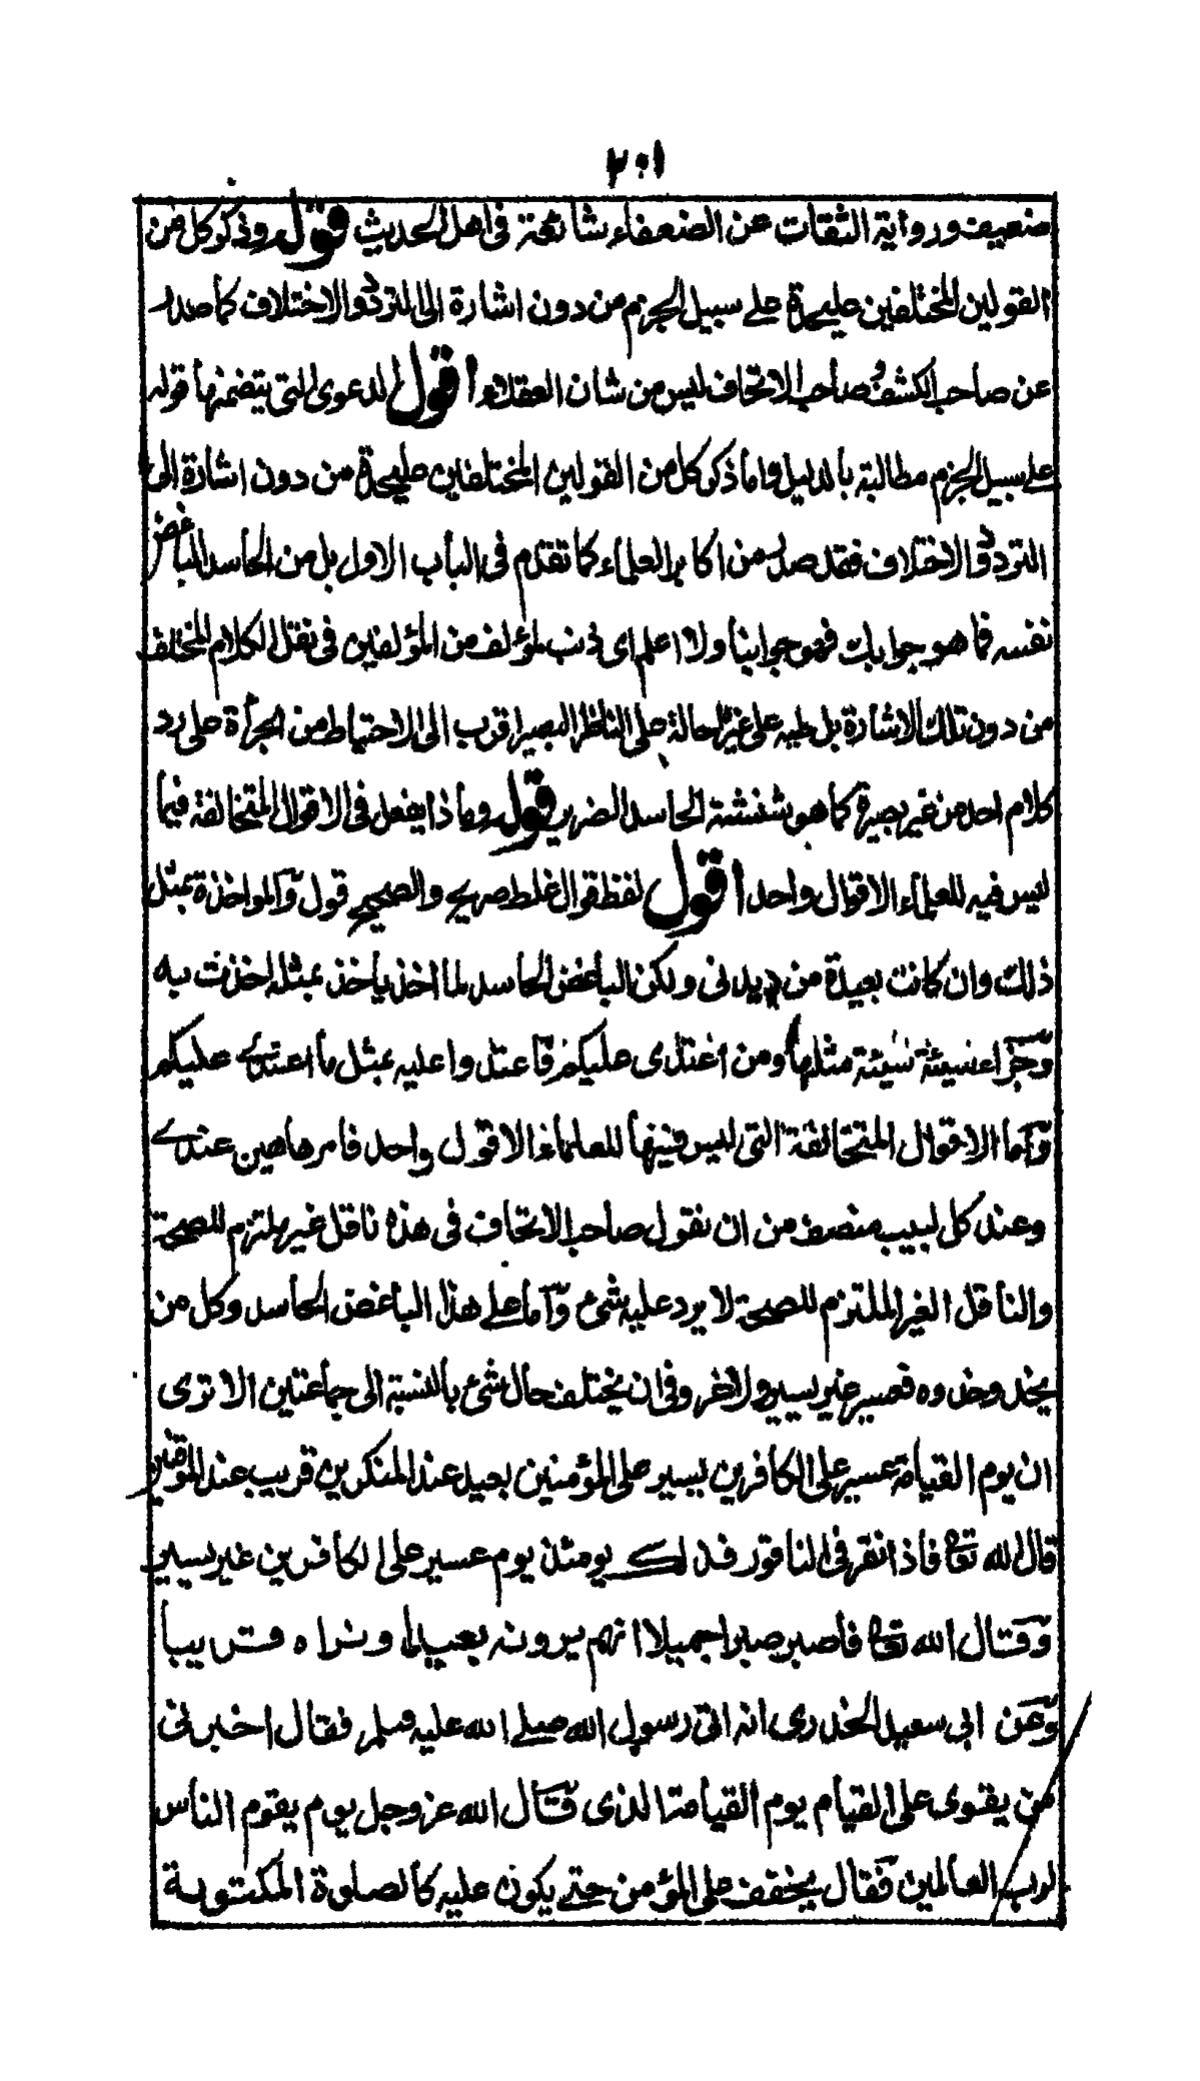 ٢٠١
ضعيف ورواية الثقات عن الضعفاء شائعة فى اهل الحديث قوله وذكر كل من
القولين المختلفين عليحدة على سبيل الجزم من دون اشارة الى التردد والاختلاف كما صدر
عن صاحب الكشف وصاحب الاتحاف ليس من شان العقلاء اقول الدعوى التى يتضمنها قوله
على سبيل الجزم مطالبة بالدليل واما ذكر كل من القولين المختلفين عليحدة من دون اشارة الى
التردد والاختلاف فقد صدر من اكابر العلماء كما تقدم فى الباب الاول بل من الحاسد الباغض
نفسه فما هو جوابك فهو جوابنا ولا اعلم اى ذنب لمؤلف من المؤلفين فى نقل الكلام المختلف
من دون تلك الاشارة بل طيه على غيره احالة على الناظر البصير اقرب الى الاحتياط من الجرأة على رد
كلام احد من غير بصيرة كما هو شنشنة الحاسد الضرير قوله وماذا يفعل فى الاقوال المتخالفة فيما
ليس فيه للعلماء الا قوال واحد اقول لفظ قوال غلط صريح والصحيح قول والمواخذة بمثل
ذلك وان كانت بعيدة من ديدنى ولكن الباغض الحاسد لما اخذ ياخذ بمثله اخذت به
وجزاء سيئة سيئة مثلها ومن اعتدى عليكم فاعتدوا عليه بمثل ما اعتدى عليكم
واما الاقوال المتخالفة التى ليس فيها للعلماء الا قول واحد فامرها هين عندى
وعند كل لبيب منصف من ان نقول صاحب الاتحاف فى هذه ناقل غير ملتزم للصحة
والناقل الغير الملتزم للصحة لا يرد عليه شئ واما على هذا الباغض الحاسد وكل من
يحذو حذوه فعسير غير يسير ولا غرو فى ان يختلف حال شئ بالنسبة الى جماعتين الا ترى
ان يوم القيامة عسير على الكافرين يسير على المؤمنين بعيد عند المنكرين قريب عند الموقنين
قال الله تعالى فاذا نقر فى الناقور فذلك يومئذ يوم عسير على الكافرين غير يسير
وقال الله تعالى فاصبر صبرا جميلا انهم يرونه بعيدا ونراه قريبا
وعن ابى سعيد الخدرى انه اتى رسول الله صلى الله عليه وسلم فقال اخبرنى
من يقوى على القيام يوم القيامة الذى قال الله عز وجل يوم يقوم الناس
لرب العالمين فقال يخفف على المؤمن حتى يكون عليه كالصلوة المكتوبة